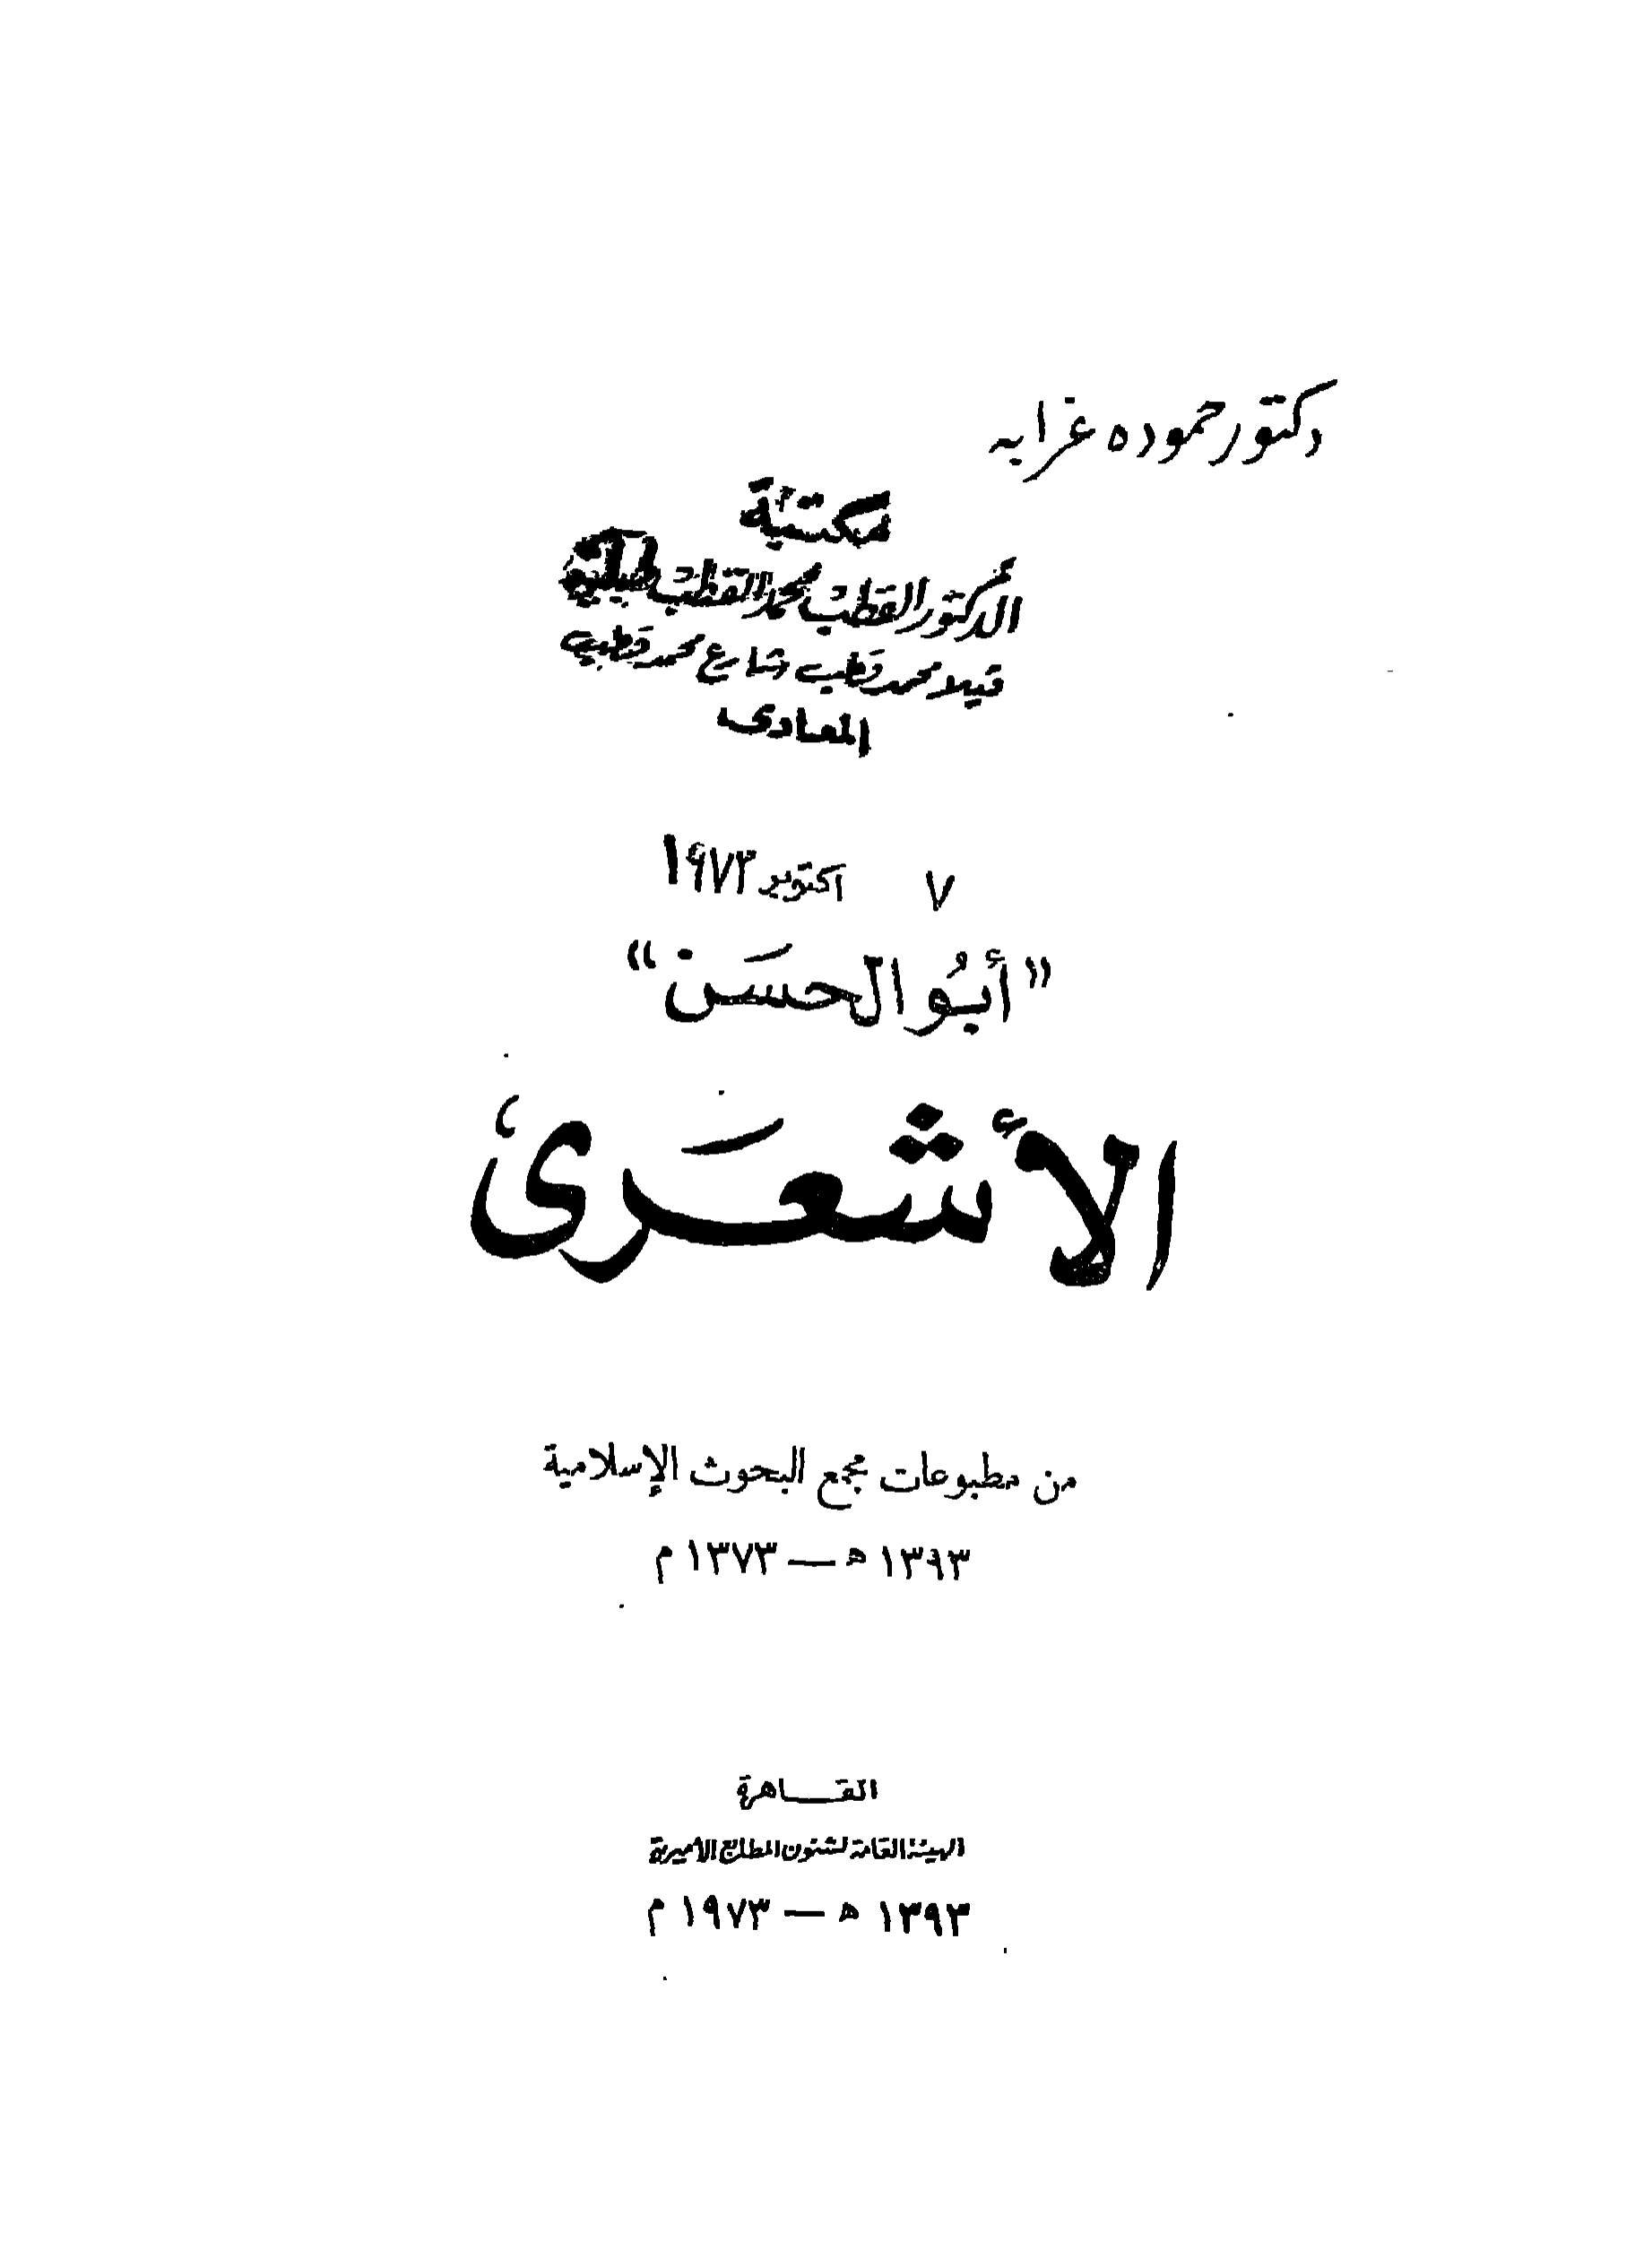 دكتور حموده غرابه
مكتبة
الدكتور القطب محمد القطب طبلية
فيلا محمد قطب شارع محمد قطب
المعادى
٧ اكتوبر ١٩٧٣
"أبُو الحسَن"
الأشعَرى
من مطبوعات مجمع البحوث الإسلامية
١٣٩٣ ه — ١٣٧٣ م
القـاهرة
الهيئة العامة لشئون المطابع الأميرية
١٣٩٣ ه — ١٩٧٣ م